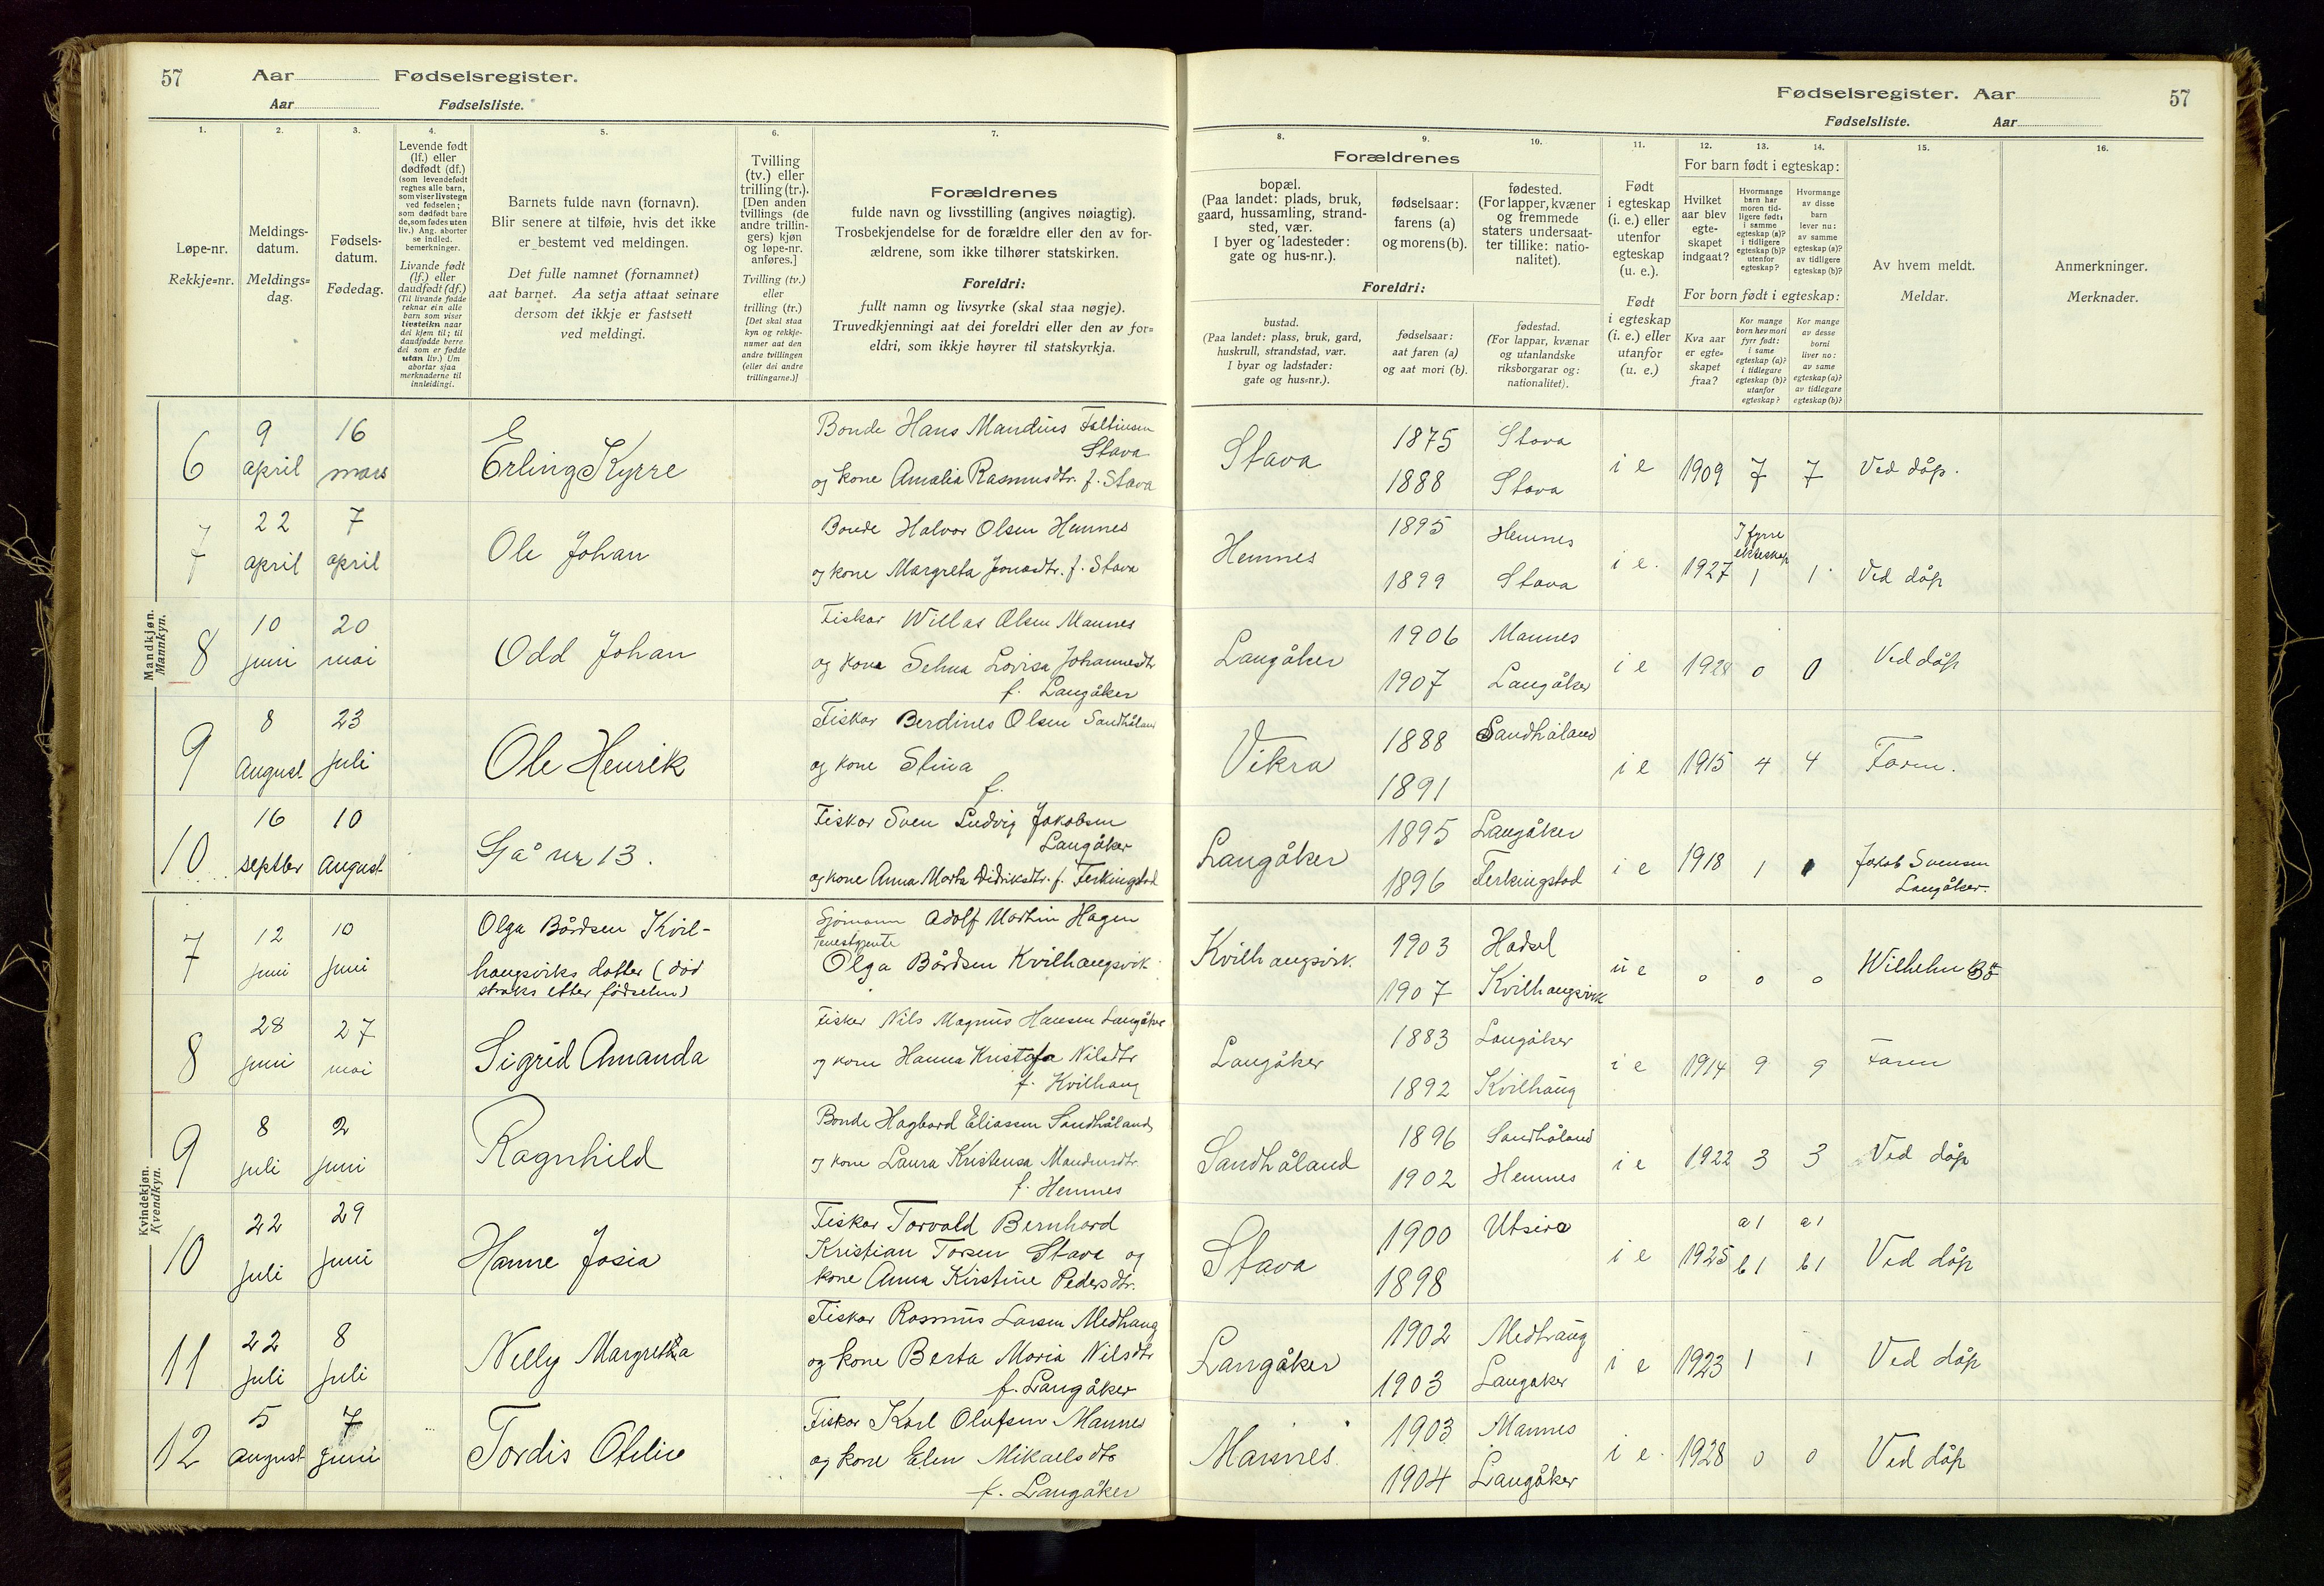 57 Aar Fødselsregister.
Aar Fødselsliste.
1.
2.
3.
4.
5.
6.
7.
Løpe-nr.
Rekkje=nr.
Meldings-
datum.
Meldings=
dag.
Fødsels-
datum.
Fødedag.
Levende født
(lf.) eller
dødfødt (df.)
(som levendefødt
regnes alle barn,
som viser livstegn
ved fødselen;
som dødfødt bare
de, som fødes uten
liv.) Ang. aborter
se indled.
bemerkninger.
Livande født
(lf.) eller
daudfødt (df.)
(Til livande fødde
reknar ein alle
barn som viser
livsteikn naar
dei kjem til; til
daudfødde berre
dei som er fødde
utan liv.) Um
abortar sjaa
merknaderne til
innleidingi.
Barnets fulde navn (fornavn).
Blir senere at tilføie, hvis det ikke
er bestemt ved meldingen.
Det fulle namnet (fornamnet)
aat barnet. Aa setja attaat seinare
dersom det ikkje er fastsett
ved meldingi.
Tvilling
(tv.) eller
trilling (tr.).
[Den anden
tvillings (de
andre trillin-
gers) kjøn
og løpe-nr.
anføres.]
Tvilling (tv.)
eller
trilling (tr.)
[Det skal staa
kyn og rekkje-
numer aat den
andre tvillingen
(eller dei andre
trillingarne.)]
Forældrenes
fulde navn og livsstilling (angives nøiagtig).
Trosbekjendelse for de forældre eller den av for-
ældrene, som ikke tilhører statskirken.
Foreldri:
fullt namn og livsyrke (skal staa nøgje).
Truvedkjenningi aat dei foreldri eller den av for=
eldri, som ikkje høyrer til statskyrkja.
Mandkjøn.
Mannkyn.
6
9
april
16
mars
E
Erling Kyrre
Bonde Hans Mandius Faltinsen
Stava
og kone Amalia Rasmusdtr. f. Stava
7
22
april
7
april
Ole Johan
Bonde Halvor Olsen Hemnes
og kone Margreta Jonasdtr. f. Stava
8
10
juni
20
mai
Odd Johan
Fiskar Willas Olsen Mannes
og kona Selma Lovisa Johannesdtr
f. Langåker
9
8
August
23
juli
Ole Henrik
Fiskar Berdines Olsen Sandhåland
og kone Stina
f.
10
16
septbr
10
August
Sjå nr 13.
Fiskar Sven Ludvig Jakobsen
Langåker
og kone Anna Marta Didriksdtr. f. Ferkingstad
Kvindekjøn.
Kvendkyn.
7
12
juni
10
juni
Olga Bårdsen Kvil-
haugsviks datter (død
straks etter fødselen)
Sjømann Adolf Martin Hagen
tenestgjente
Olga Bårdsen Kvilhaugsvik
8
28
juni
27
mai
Sigrid Amanda
Fisker Nils Magnus Hansen Langåker
og kone Hanna Kristofa Nilsdtr
f. Kvilhaug
9
8
juli
2
juni
Ragnhild
Bonde Hagbard Eliassen Sandhåland
og kone Laura Kristensa Mandiusdtr
f. Hemnes
10
22
juli
29
juni
Hanne Josia
Fiskar Torvald Bernhard
Kristian Torsen Stava og
kone Anna Kirstine Pedersdtr.
11
22
juli
8
juli
Nelly Margretha
Fiskar Rasmus Larsen Medhaug
og kone Berta Maria Nilsdtr
f. Langåker
12
5
August
7
juni
Tordis Otelie
Fiskar Karl Olufsen Mannes
og kone Elen Mikaelsdtr
f. Langåker
Fødselsregister. Aar 57
Fødselsliste. Aar
8.
9.
10.
11.
12.
13.
14.
15.
16.
Forældrenes
bopæl.
(Paa landet: plads, bruk,
gaard, hussamling, strand-
sted, vær.
I byer og ladesteder:
gate og hus-nr.).
fødselsaar:
farens (a)
og morens (b).
fødested.
(For lapper, kvæner
og fremmede
staters undersaat-
ter tillike: natio-
nalitet).
Foreldri:
bustad.
(Paa landet: plass, bruk, gard,
huskrull, strandstad, vær.
I byar og ladstader:
gate og hus=nr.).
fødselsaar:
aat faren (a)
og aat mori (b).
fødestad.
(For lappar, kvænar
og utanlandske
riksborgarar og:
nationalitet).
Født
i egteskap
(i. e.) eller
utenfor
egteskap
(u. e.).
Født
i egteskap
(i. e.) eller
utanfor
(u. e.)
For barn født i egteskap:
Hvilket
aar blev
egte-
skapet
indgaat?
Hvormange
barn har
moren tid-
ligere født:
i samme
egteskap (a)?
i tidligere
egteskap (b)?
utenfor
egteskap?
Hvormange
av disse
barn
lever nu:
av samme
egteskap (a)?
av tidligere
egteskap (b)?
For born født i egteskap:
Kva aar
er egte=
skapet
fraa?
Kor mange
born hev mori
fyrr født:
i same
egteskap (a)?
i tidlegare
egteskap (b)?
utanfor
egteskap?
Kor mange
av desse
borni
liver no:
av same
egteskap (a)?
av tidlegare
egteskap (b)?
Av hvem meldt.
Meldar.
Anmerkninger.
Merknader.
Stava
1875
1888
Stava
Stava
i e
1909
7
7
Ved dåp.
Hemnes
1895
1899
Hemnes
Stava
i e.
1927
I fyrre
ekteskap
1
1
Ved dåp
Langåker
1906
1907
Mannes
Langåker
i e
1928
0
0
Ved dåp
Vikra
1888
1891
Sandhåland
i e
1915
4
4
Faren.
Langåker
1895
1896
Langåker
Ferkingstad
i e
1918
1
1
Jakob Svensen
Langåker.
Kvilhaugsvik.
1903
1907
Hadsel
Kvilhaugsvik
u e
0
0
0
Wilhelm Bö
Langåker
1883
1892
Langåker
Kvilhaug
i e
1914
9
9
Faren
Sandhåland
1896
1902
Sandhåland
Hemnes
i e
1922
3
3
Ved dåp
Stava
1900
1898
Utsira
i e
1925
a 1
b 1
a 1
b 1
Ved dåp
Langåker
1902
1903
Medhaug
Langåker
i e
1923
1
1
Ved dåp
Mannes.
1903
1904
Mannes
Langåker
i e.
1928
0
0
Ved dåp